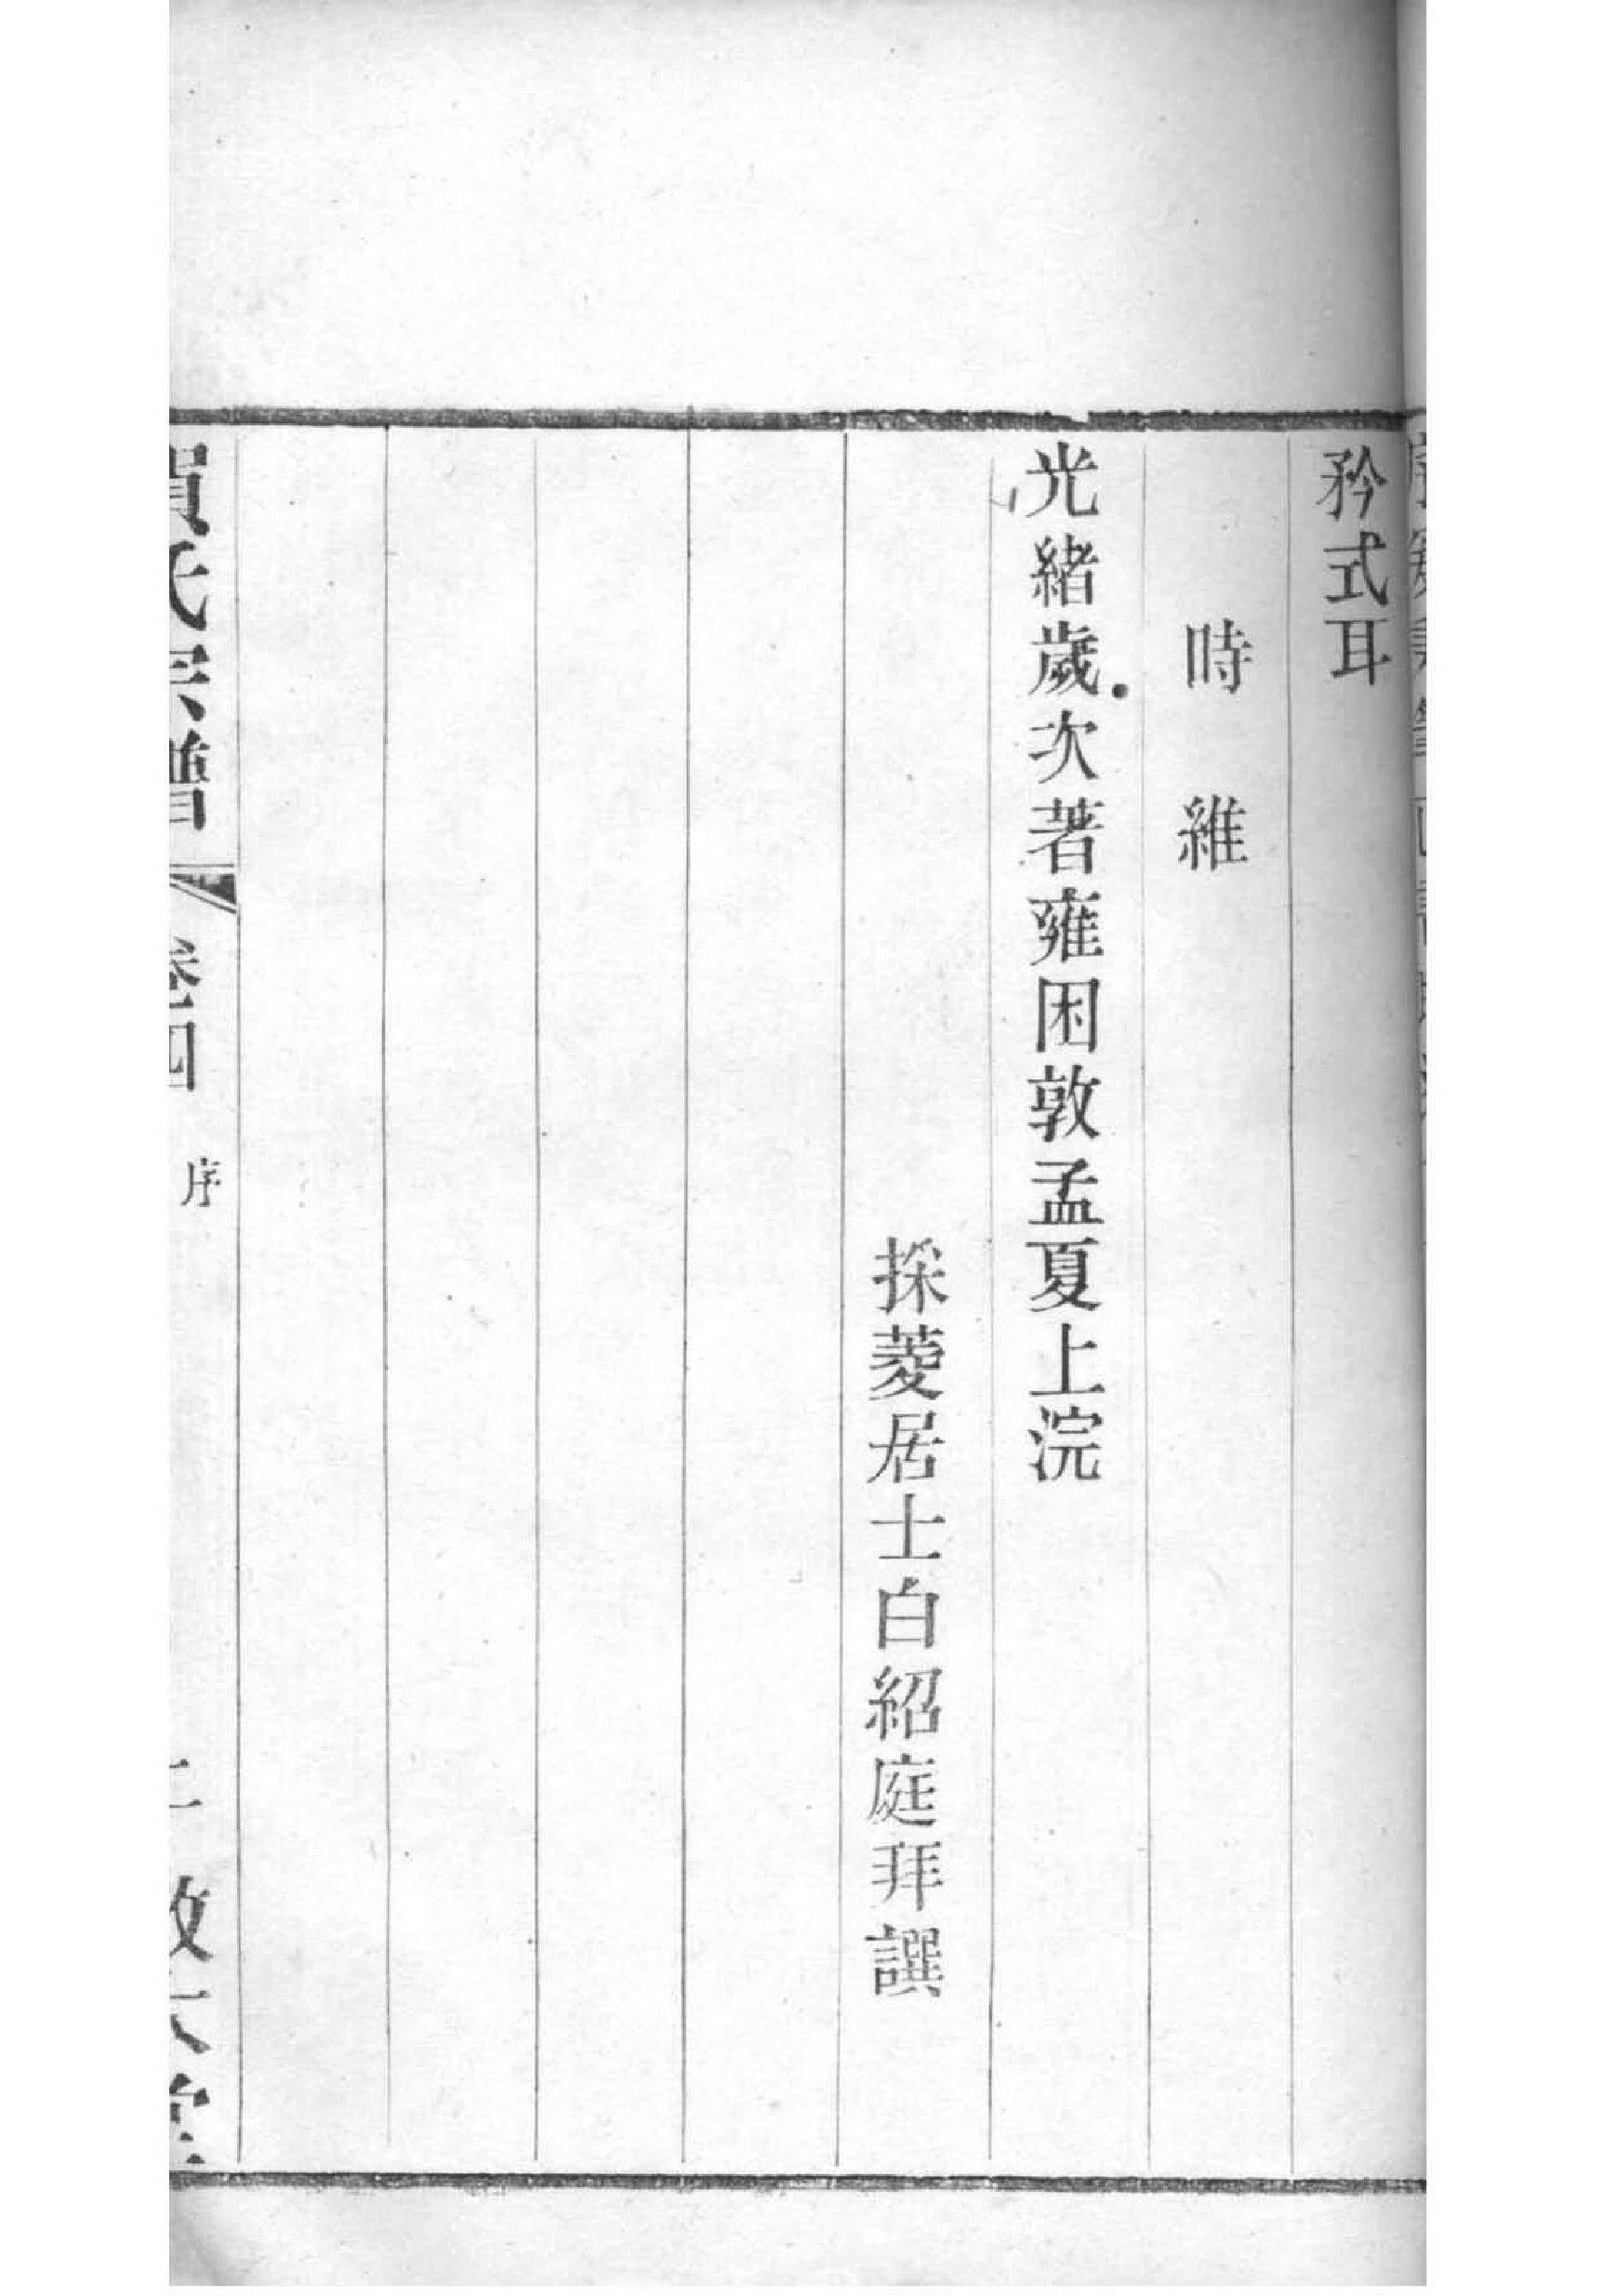 矜式耳
時維
光緒歲次著雍困敦孟夏上浣
採菱居士白紹庭拜譔
賀氏宗譜 卷四 序